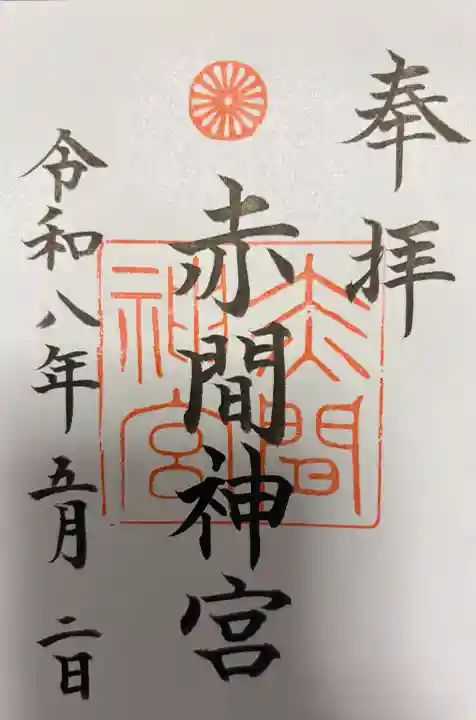 奉拝
赤間神宮
赤間神宮
令和八年五月二日